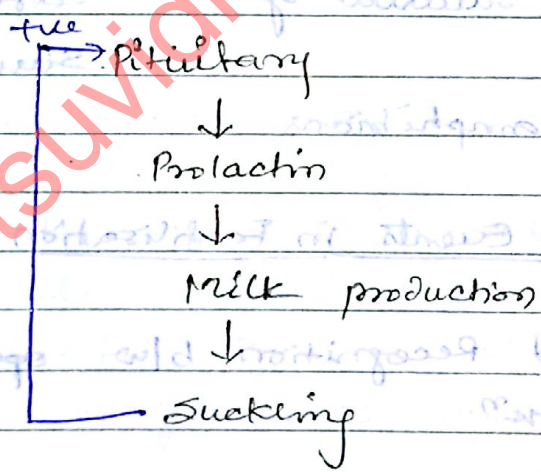 +ve
Pituitary
↓
Prolactin
↓
Milk production
↓
Suckling